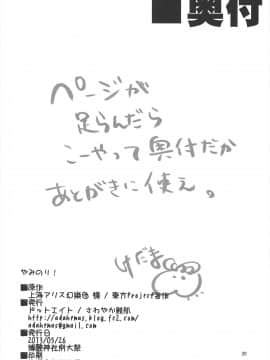 ■奥付
ページが
足らんだら
こーやって奥付だか
あとがきに使え。
けだま
やみのり！
■原作
上海アリス幻樂団 様 / 東方Project著作
■発行
ドットエイト / さわやか鮫肌
■発行日
2013/05/26
博麗神社例大祭
■印刷